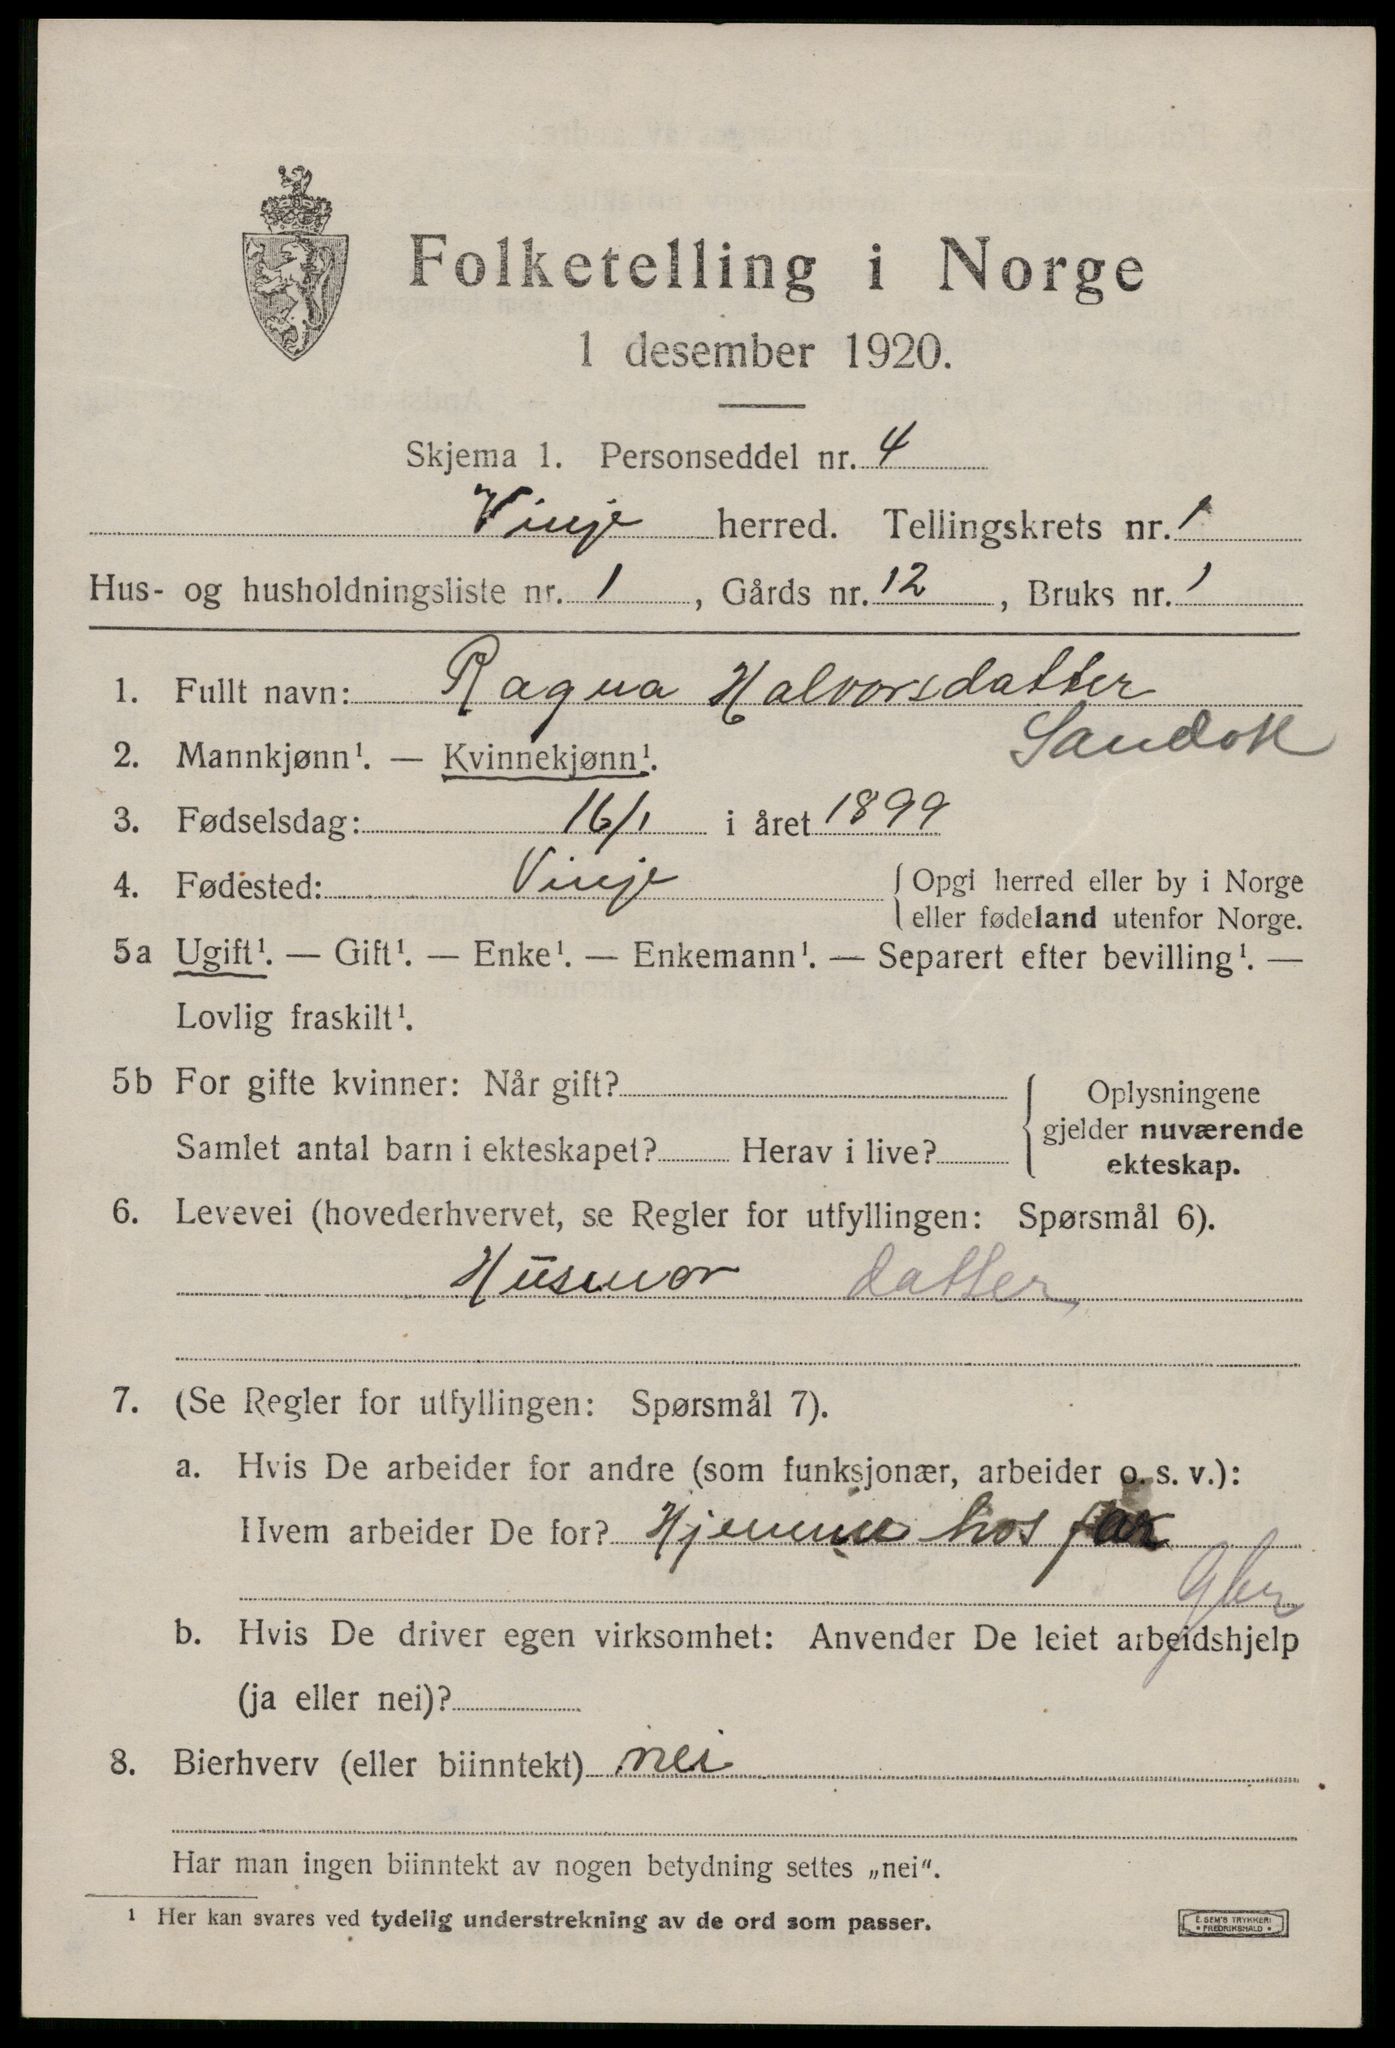 Folketelling i Norge
1 desember 1920.
Skjema 1. Personseddel nr. 4
Vinje herred. Tellingskrets nr. 1
Hus- og husholdningsliste nr. 1, Gårds nr. 12, Bruks nr. 1
1. Fullt navn: Ragna Halvorsdatter
Sandok
2. Mannkjønn¹. — Kvinnekjønn¹.
3. Fødselsdag: 16/1 i året 1899
4. Fødested: Vinje { Opgi herred eller by i Norge
eller fødeland utenfor Norge.
5a Ugift¹. — Gift¹. — Enke¹. — Enkemann¹. — Separert efter bevilling¹. —
Lovlig fraskilt¹.
5b For gifte kvinner: Når gift?
Samlet antal barn i ekteskapet? Herav i live?
{ Oplysningene
gjelder nuværende
ekteskap.
6. Levevei (hovederhvervet, se Regler for utfyllingen: Spørsmål 6).
Husmor datter
7. (Se Regler for utfyllingen: Spørsmål 7).
a. Hvis De arbeider for andre (som funksjonær, arbeider o. s. v.):
Hvem arbeider De for? Hjemme hos far
gbr
b. Hvis De driver egen virksomhet: Anvender De leiet arbeidshjelp
(ja eller nei)?
8. Bierhverv (eller biinntekt) nei
Har man ingen biinntekt av nogen betydning settes „nei“.
¹ Her kan svares ved tydelig understrekning av de ord som passer.
E. SEM'S TRYKKERI
• FREDRIKSHALD •